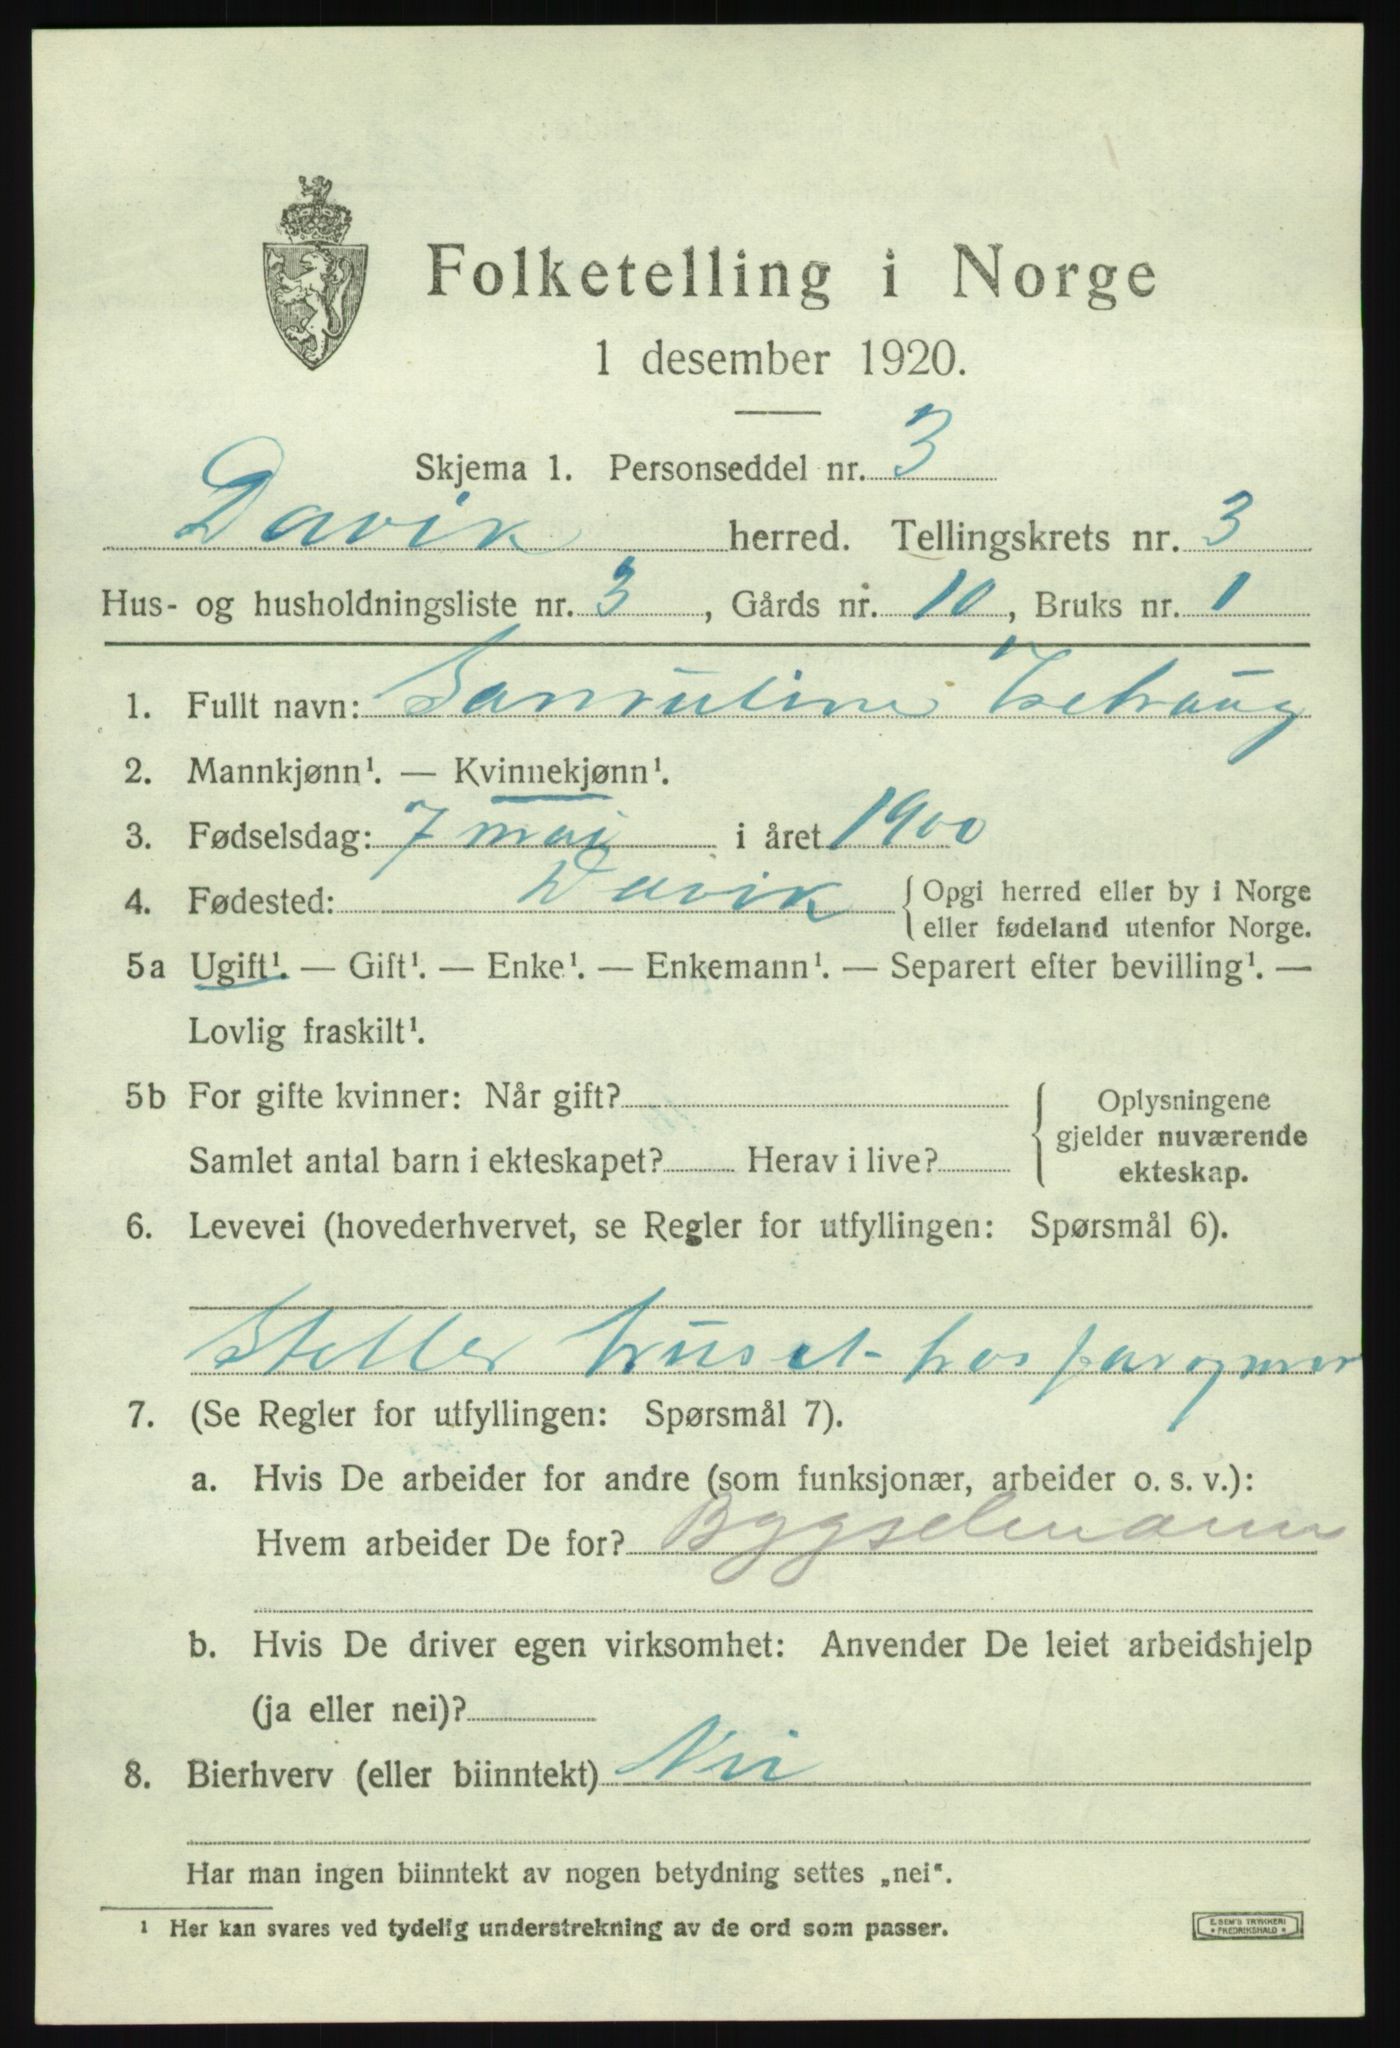 Folketelling i Norge
1 desember 1920.
Skjema 1. Personseddel nr. 3
Davik herred. Tellingskrets nr. 3
Hus- og husholdningsliste nr. 3, Gårds nr. 10, Bruks nr. 1
1. Fullt navn:
2. Mannkjønn¹. — Kvinnekjønn¹.
3. Fødselsdag: 7 mai i året 1900
4. Fødested: Davik {Opgi herred eller by i Norge
eller fødeland utenfor Norge.
5a Ugift¹. — Gift¹. — Enke¹. — Enkemann¹. — Separert efter bevilling¹. —
Lovlig fraskilt¹.
5b For gifte kvinner: Når gift?
Samlet antal barn i ekteskapet? Herav i live?
Oplysningene
gjelder nuværende
ekteskap.
6. Levevei (hovederhvervet, se Regler for utfyllingen: Spørsmål 6).
Steller huset hos far og mor
7. (Se Regler for utfyllingen: Spørsmål 7).
a. Hvis De arbeider for andre (som funksjonær, arbeider o. s. v.):
Hvem arbeider De for? Byggselmann
b. Hvis De driver egen virksomhet: Anvender De leiet arbeidshjelp
(ja eller nei)?
8. Bierhverv (eller biinntekt) Nei
Har man ingen biinntekt av nogen betydning settes „nei“.
¹ Her kan svares ved tydelig understrekning av de ord som passer.
E. SEM'S TRYKKERI
* FREDRIKSHALD *